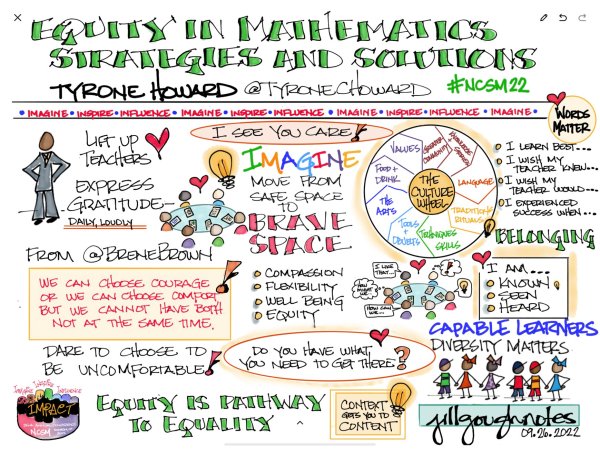 EQUITY IN MATHEMATICS
STRATEGIES AND SOLUTIONS
TYRONE HOWARD @TYRONECHOWARD #NCSM22
IMAGINE • INSPIRE • INFLUENCE • IMAGINE • INSPIRE • INFLUENCE • IMAGINE • INSPIRE • INFLUENCE • IMAGINE •
WORDS
MATTER
LIFT UP
TEACHERS
EXPRESS
GRATITUDE—
DAILY, LOUDLY
I SEE YOU CARE!
IMAGINE
MOVE FROM
SAFE SPACE
TO
BRAVE
SPACE
COMPASSION
FLEXIBILITY
WELL BEING
EQUITY
THE
CULTURE
WHEEL
VALUES
GREATER
COMMUNITY
LANGUAGE
TRADITIONS
RITUALS
TECHNIQUES
SKILLS
TOOLS +
THE
ARTS
FOOD +
DRINK
I LEARN BEST...
I WISH MY
TEACHER KNEW...
I WISH MY
TEACHER WOULD...
I EXPERIENCED
SUCCESS WHEN...
BELONGING
I AM...
KNOWN
SEEN
HEARD
CAPABLE LEARNERS
DIVERSITY MATTERS
FROM @BRENEBROWN
WE CAN CHOOSE COURAGE
OR WE CAN CHOOSE COMFORT
BUT WE CANNOT HAVE BOTH
NOT AT THE SAME TIME.
DARE TO CHOOSE TO
BE UNCOMFORTABLE!
I LIKE
THAT...
HOW CAN
WE...
DO YOU HAVE WHAT
YOU NEED TO GET THERE?
IMAGINE INSPIRE INFLUENCE
IMPACT
NCSM
EQUITY IS PATHWAY
TO EQUALITY
CONTEXT
GETS YOU TO
CONTENT
jillgoughnotes
09.26.2022